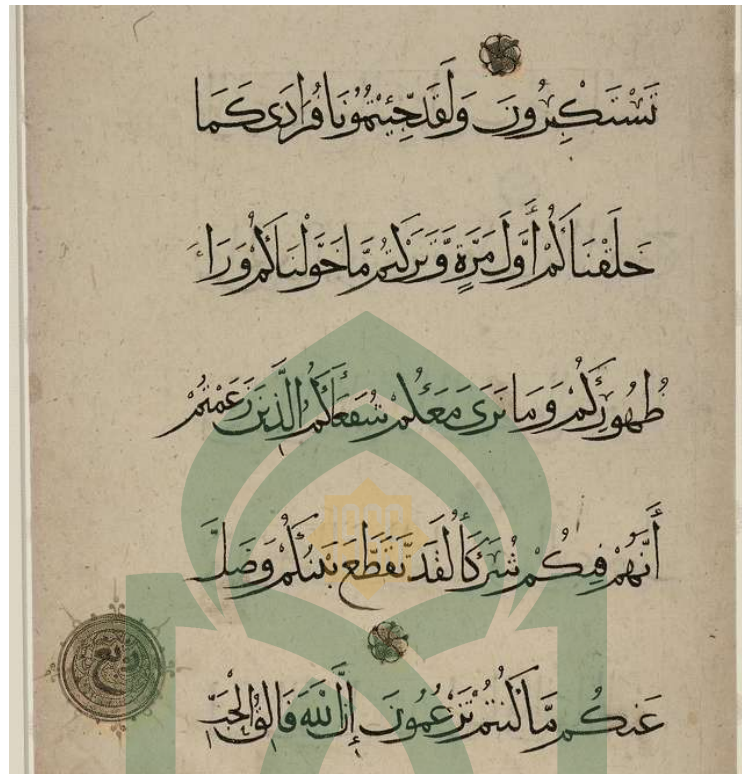 تَسْتَكْبِرُونَ وَلَقَدْ جِئْتُمُونَا فُرَادَىٰ كَمَا
خَلَقْنَاكُمْ أَوَّلَ مَرَّةٍ وَّتَرَكْتُم مَّا خَوَّلْنَاكُمْ وَرَاءَ
ظُهُورِكُمْ وَمَا نَرَىٰ مَعَكُمْ شُفَعَاءَكُمُ الَّذِينَ زَعَمْتُمْ
أَنَّهُمْ فِيكُمْ شُرَكَاءُ لَقَد تَّقَطَّعَ بَيْنَكُمْ وَضَلَّ
ربع
عَنكُم مَّا كُنتُمْ تَزْعُمُونَ إِنَّ اللَّهَ فَالِقُ الْحَبِّ